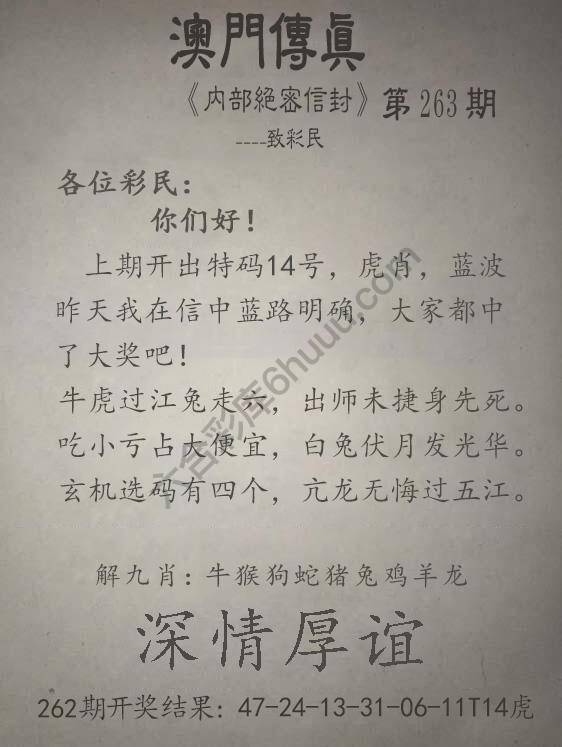 澳門傳眞
《内部絕密信封》第 263 期
----致彩民
各位彩民：
你们好！
上期开出特码14号，虎肖，蓝波
昨天我在信中蓝路明确，大家都中
了大奖吧！
牛虎过江兔走六，出师未捷身先死。
吃小亏占大便宜，白兔伏月发光华。
玄机选码有四个，亢龙无悔过五江。
解九肖：牛猴狗蛇猪兔鸡羊龙
深情厚谊
262期开奖结果：47-24-13-31-06-11T14虎
六合彩库6huuu.com